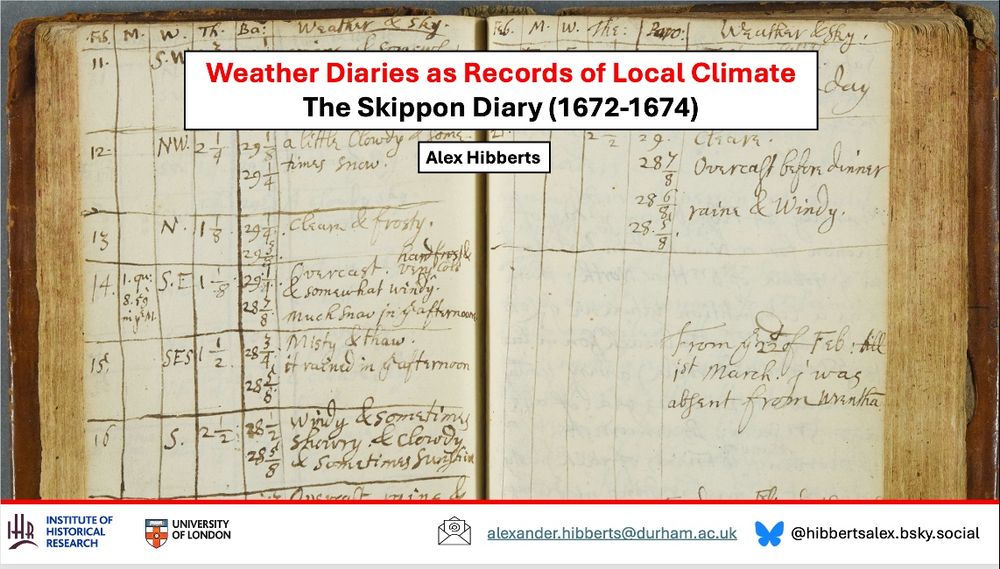 Weather Diaries as Records of Local Climate
The Skippon Diary (1672-1674)
Alex Hibberts
Feb. M. W. Th: Ba: Weather & Sky.
11. S.W
12. NW. 2 1/4 29 1/8 a little Clowdy & some
29 1/4 times snow.
13 N. 1 1/8 29 1/4 Cleare & frosty.
hard frost &
very cold
14. 1. qu: S.E 1 1/8 29 1/4 Overcast.
8.59 & somewhat windy.
28 7/8 Much snow in yͤ afternoone
15. SES 1 1/2 28 3/4 Misty & thaw.
it rained in yͤ afternoon
28 5/8
16 S. 2 1/2 28 1/2 Windy & sometimes
28 5/8 Showry & Clowdy
& Sometimes Sunshine
Overcast, raine &
Feb. M. W. The: Baro: Weather & Sky.
day
2 1/2 29. Cleare.
28 7/8 Overcast before dinner
28 6/8 raine & Windy.
28. 5/8.
From yͤ 22 of Feb: till
1st March. j was
absent from Wrentha
INSTITUTE OF
HISTORICAL
RESEARCH
UNIVERSITY
OF LONDON
alexander.hibberts@durham.ac.uk
@hibbertsalex.bsky.social